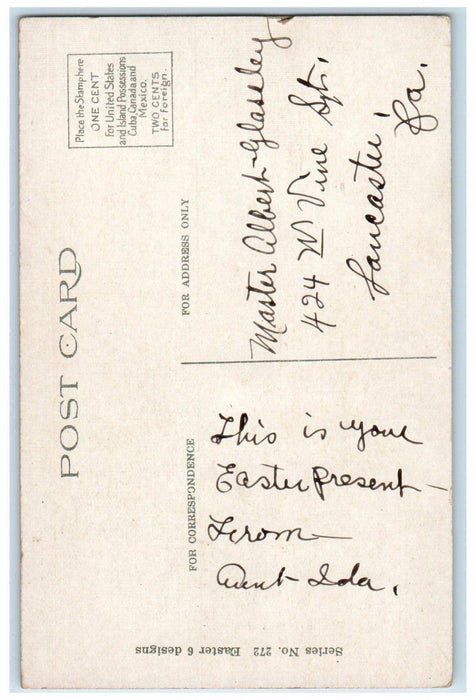 POST CARD
Place the Stamp here
ONE CENT
for United States
and Island Possessions
Cuba, Canada and
Mexico.
TWO CENTS
for foreign.
FOR CORRESPONDENCE
This is your
Easter present -
From
Aunt Ida.
FOR ADDRESS ONLY
Master Albert Glaseley
424 W Vine St.
Lancaster,
Pa.
Series No. 272 Easter 6 designs